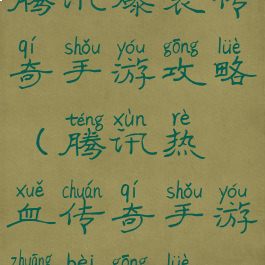 qí shǒu yóu gōng lüè
奇手游攻略
téng xùn rè
(腾讯热
xuě chuán qí shǒu yóu
血传奇手游
zhuāng bèi gōng lüè